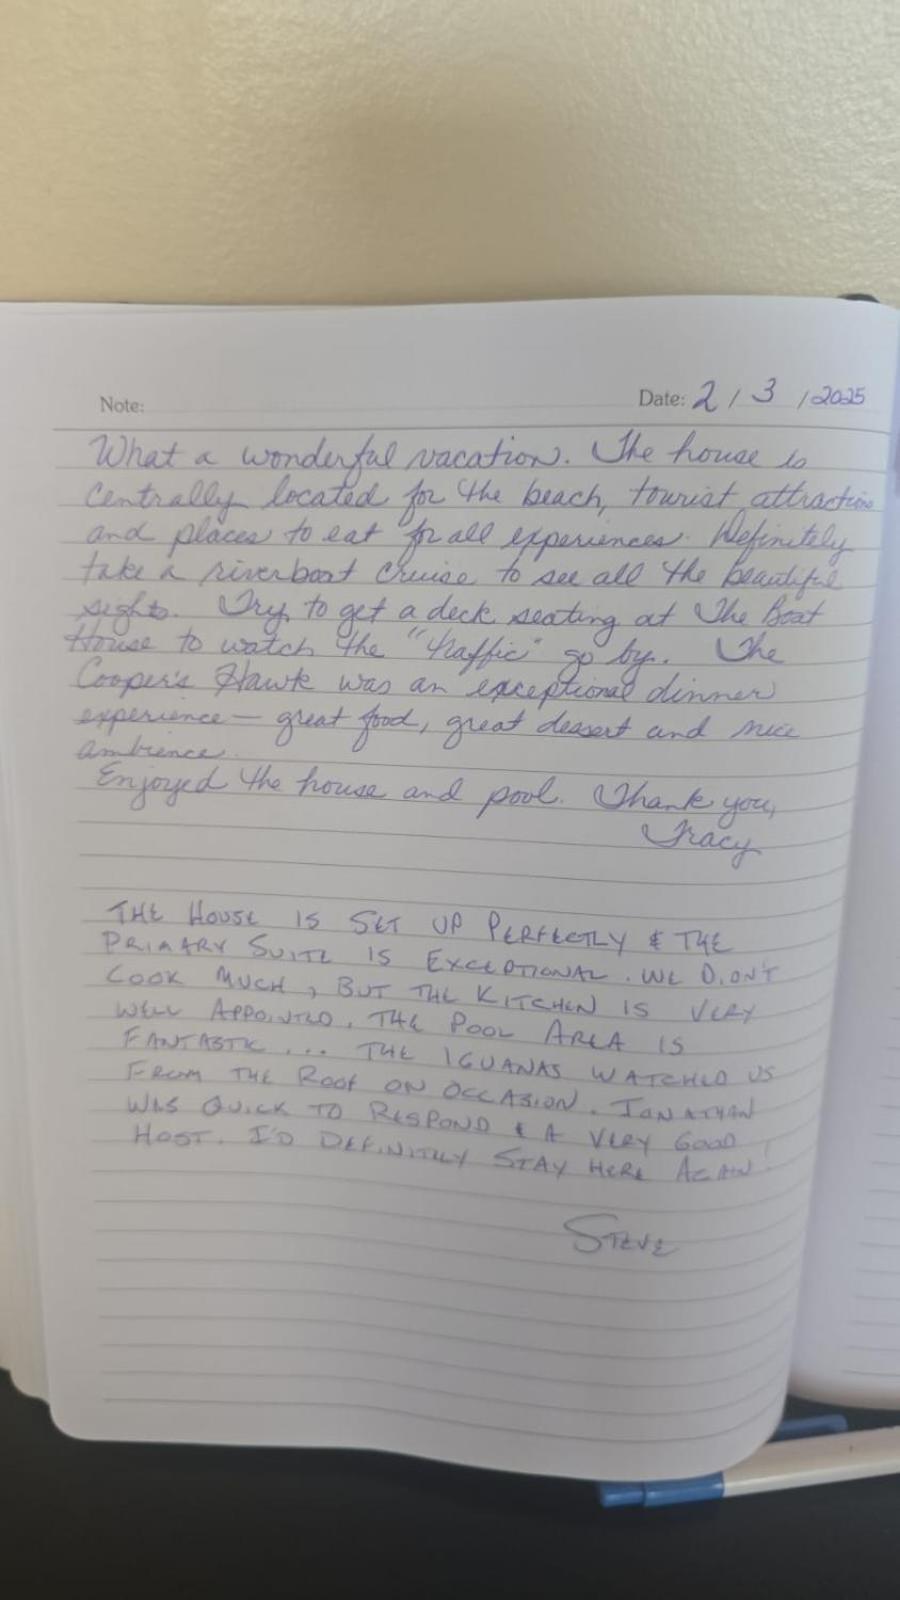 Note:
Date: 2 / 3 / 2025
What a wonderful vacation. The house is
centrally located for the beach, tourist attractions
and places to eat for all experiences. Definitely
take a riverboat cruise to see all the beautiful
sights. Try to get a deck seating at The Boat
House to watch the "traffic" go by. The
Cooper's Hawk was an exceptional dinner
experience — great food, great dessert and nice
ambience.
Enjoyed the house and pool. Thank you,
Tracy
THE HOUSE IS SET UP PERFECTLY & THE
PRIMARY SUITE IS EXCEPTIONAL. WE DIDN'T
COOK MUCH, BUT THE KITCHEN IS VERY
WELL APPOINTED. THE POOL AREA IS
FANTASTIC... THE IGUANAS WATCHED US
FROM THE ROOF ON OCCASION. JONATHAN
WAS QUICK TO RESPOND & A VERY GOOD
HOST. I'D DEFINITELY STAY HERE AGAIN!
STEVE